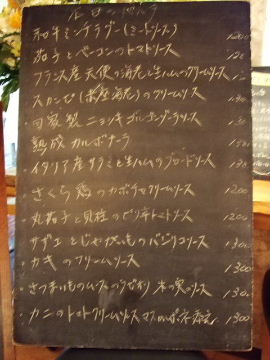 本日のパスタ
和牛ミンチラグー(ミートソース) 1200
茄子とベーコンのトマトソース 120
フランス産天使の海老と生ハムのクリームソース
スカンピ(赤座海老)のクリームソース
自家製ニョッキ ゴルゴンゾーラソース 130
熟成カルボナーラ 150
・イタリア産サラミと生ハムのソース 135
・さくら鶏のカボチャクリームソース 1200
・丸茄子と貝柱のピリ辛トマトソース 1200
・サザエとじゃがいものバジリコソース 1300
・カキのクリームソース 1300
・さつまいものムースのラビオリ 木の実のソース 130
・カニのトマトクリームソース 1300